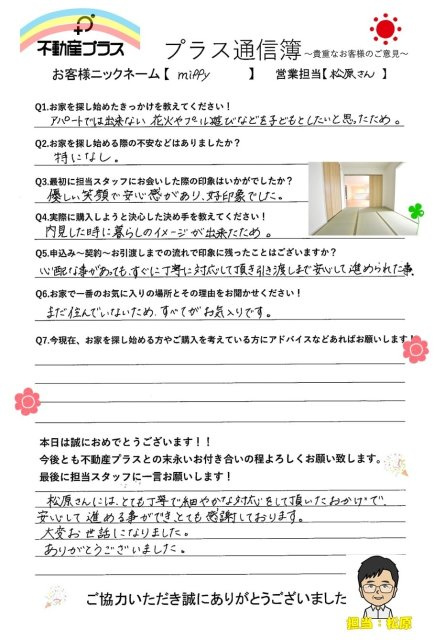 不動産プラス
プラス通信簿 ～貴重なお客様のご意見～
お客様ニックネーム【 miffy 】 営業担当【 松原さん 】
Q1.お家を探し始めたきっかけを教えてください！
アパートでは出来ない花火やプール遊びなどを子どもとしたいと思ったため。
Q2.お家を探し始める際の不安などはありましたか？
特になし。
Q3.最初に担当スタッフにお会いした際の印象はいかがでしたか？
優しい笑顔で安心感があり、好印象でした。
Q4.実際に購入しようと決心した決め手を教えてください！
内見した時に暮らしのイメージが出来たため。
Q5.申込み～契約～お引渡しまでの流れで印象に残ったことはございますか？
心配な事があっても、すぐに丁寧に対応して頂き引き渡しまで安心して進められた事
Q6.お家で一番のお気に入りの場所とその理由をお聞かせください！
まだ住んでいないため、すべてがお気入りです。
Q7.今現在、お家を探し始める方やご購入を考えている方にアドバイスなどあればお願いします！
本日は誠におめでとうございます！！
今後とも不動産プラスとの末永いお付き合いの程よろしくお願い致します。
最後に担当スタッフに一言お願いします！
松原さんには、とても丁寧で細やかな対応をして頂いたおかげで、
安心して進める事ができ、とても感謝しております。
大変お世話になりました。
ありがとうございました。
ご協力いただき誠にありがとうございました
担当：松原